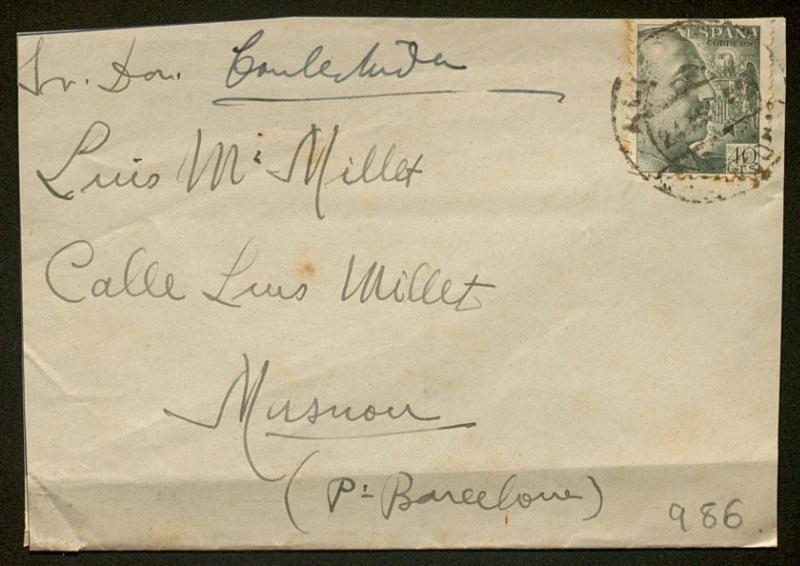 Sr. Don. Contestada
Luis Mª Millet
Calle Luis Millet
Masnou
(Pª Barcelona)
986
ESPAÑA
CORREOS
40
CTS